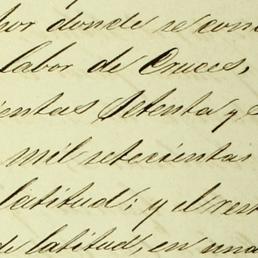 por donde se con
labor de Cruces,
ientas Setenta y
mil setecientas
latitud: y el
de latitud, en una